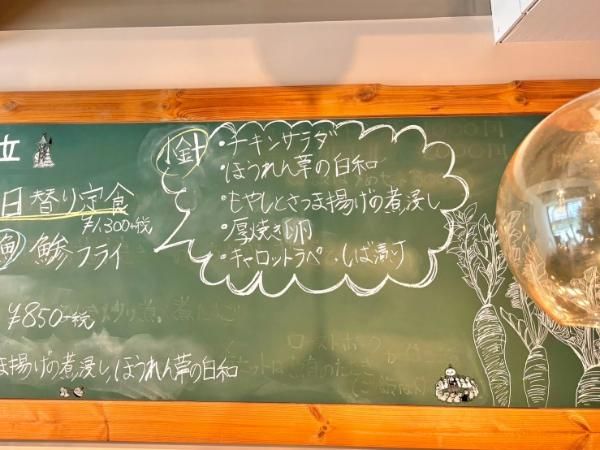 立
日替り定食
¥1,300+税
魚 鯵フライ
¥850+税
ま揚げの煮浸し、ほうれん草の白和
・チキンサラダ
・ほうれん草の白和
・もやしとさつま揚げの煮浸し
・厚焼き卵
・キャロットラペ・しば漬け